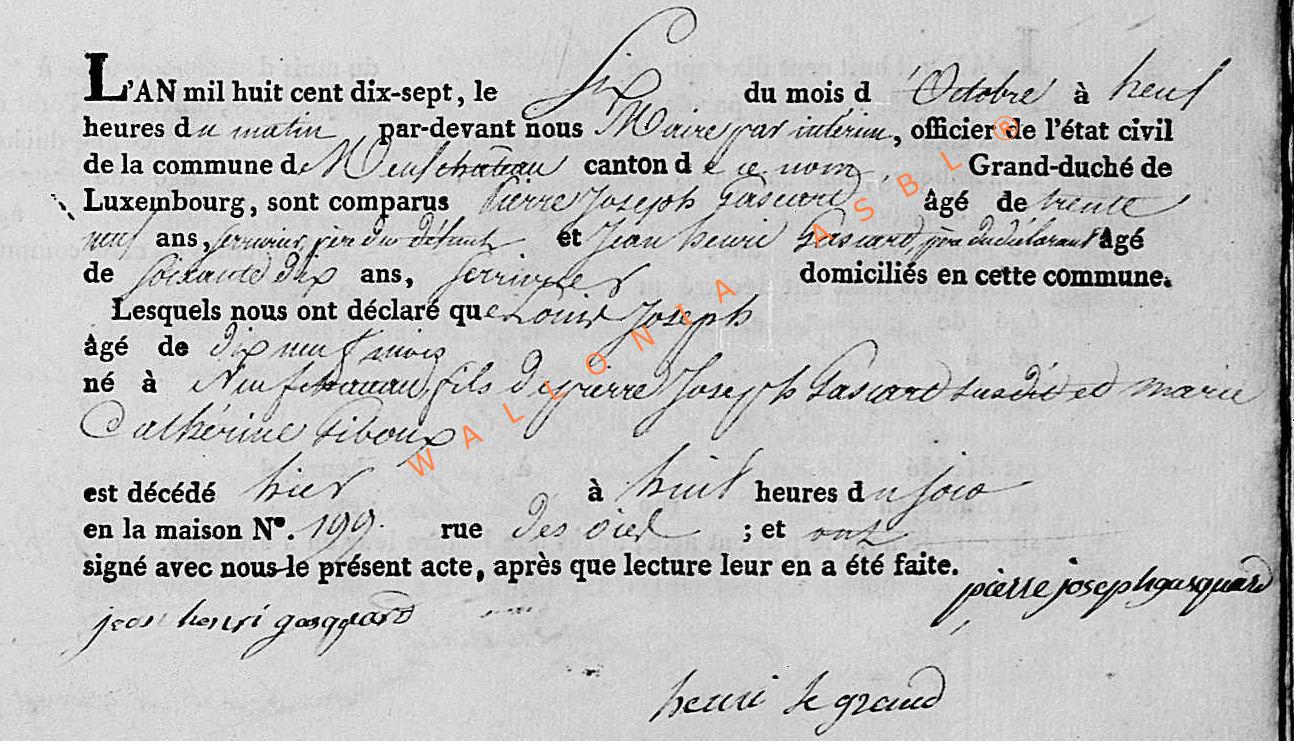 L'AN mil huit cent dix-sept, le Six du mois d'Octobre à neuf
heures du matin par-devant nous Maire par intérim, officier de l'état civil
de la commune de Neufchateau canton de ce nom, Grand-duché de
Luxembourg, sont comparus Pierre Joseph Gascard âgé de trente
neuf ans, serrurier, père du défunt et Jean henri Gascard père du déclarant âgé
de soixante dix ans, serrurier domiciliés en cette commune.
Lesquels nous ont déclaré que Louis Joseph
âgé de dix neuf mois
né à Neufchateau, fils de pierre Joseph Gascard susdit et marie
Cathérine Giboux
est décédé hier à huit heures du soir
en la maison N°. 199. rue des ; et ont
signé avec nous le présent acte, après que lecture leur en a été faite.
pierre joseph gasquard
jean henri gasquard
henri le grand
WALLONIA ASBL ®